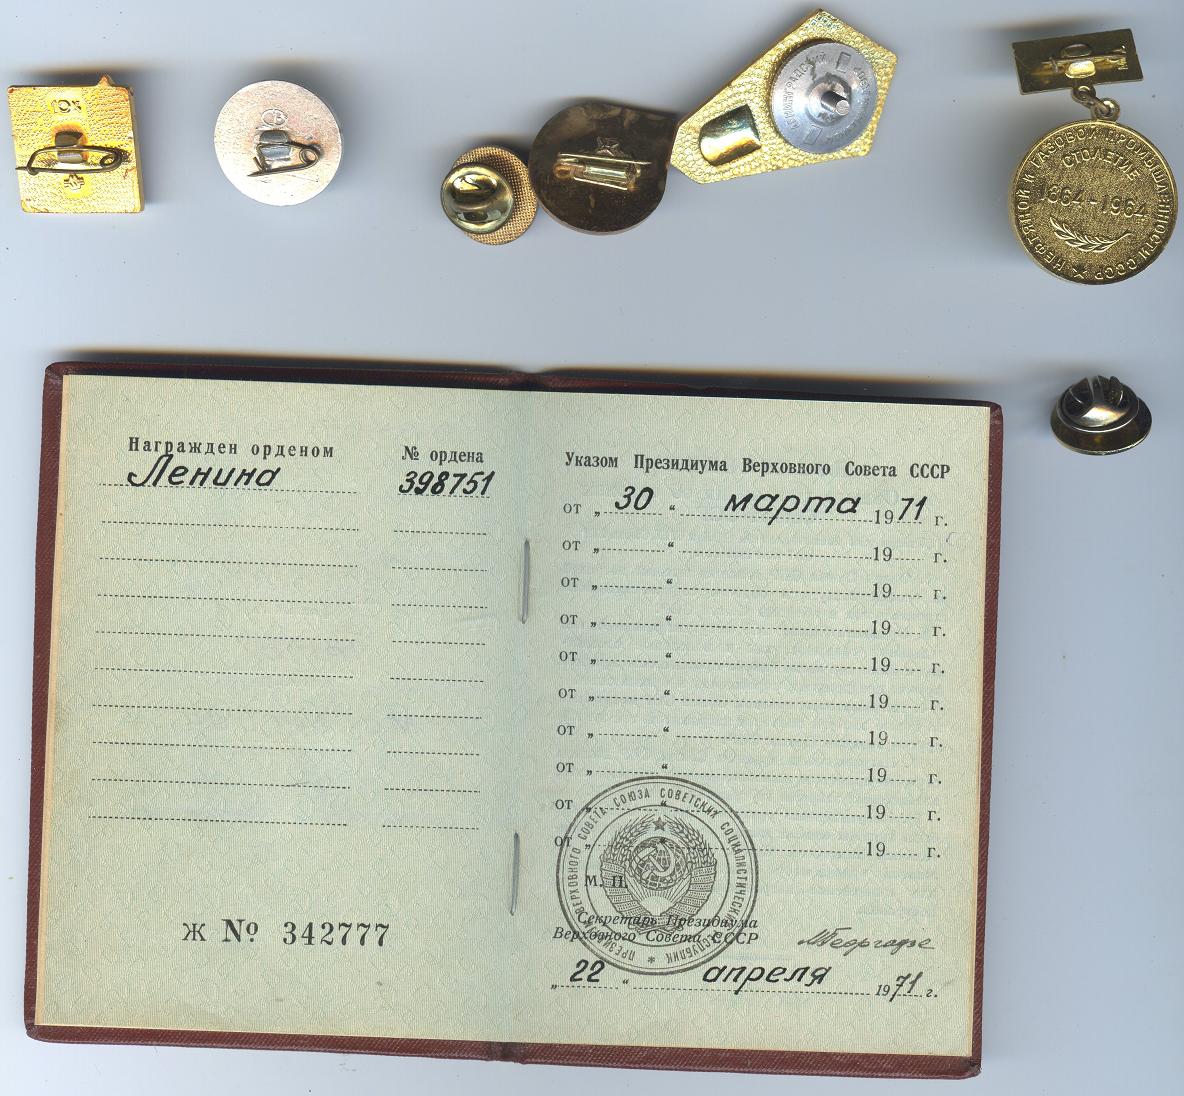 10к
ЛЕНИНГРАДСКИЙ
НЕФТЯНОЙ И ГАЗОВОЙ ПРОМЫШЛЕННОСТИ СССР
СТОЛЕТИЕ
1864-1964
Награжден орденом № ордена
Ленина 398751
Указом Президиума Верховного Совета СССР
от „ 30 “ марта 1971 г.
от „ “ 19 г.
от „ “ 19 г.
от „ “ 19 г.
от „ “ 19 г.
от „ “ 19 г.
от „ “ 19 г.
от „ “ 19 г.
от „ “ 19 г.
от „ “ 19 г.
ПРЕЗИДИУМ ВЕРХОВНОГО СОВЕТА СОЮЗА СОВЕТСКИХ СОЦИАЛИСТИЧЕСКИХ РЕСПУБЛИК
М. П.
Секретарь Президиума
Верховного Совета СССР МГеоргадзе
„ 22 “ апреля 1971 г.
Ж № 342777